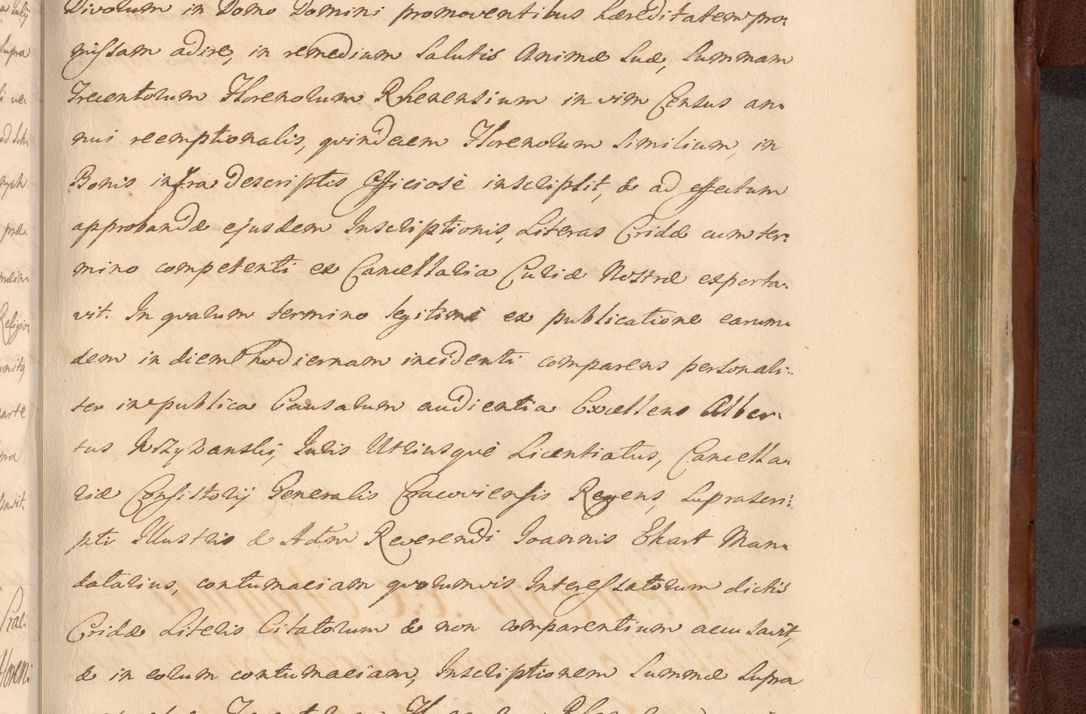 Divorum in Domo Domini promoventibus hæreditatem pro-
missam adire, in remedium Salutis Animæ Suæ, Summam
Trecentorum Florenorum Rhenensium in vim Census an-
nui reemptionalis, quindecem Florenorum Similium, in
Bonis infra Descriptis Officiosè inscripsit, & ad effectum
approbandæ ejusdem Inscriptionis, Literas Cridæ cum ter-
mino competenti ex Cancellaria Curiæ Nostræ exporta-
vit. In quarum termino legitimè ex publicatione earun-
dem in diem hodiernam incidenti comparens personali-
ter in publica Causarum audientia Excellens Alber-
tus Juris Utriusquè Licentiatus, Cancella-
riæ Consistorij Generalis Cracoviensis Regens, Suprascri-
pti Illustris & Adm Reverendi Joannis Ekart Man-
datarius, contumaciam quorumvis Interessatorum dictis
Cridæ Literis Citatorum & non comparentium accusavit,
& in eorum contumaciam, Inscriptionem Summæ Supra